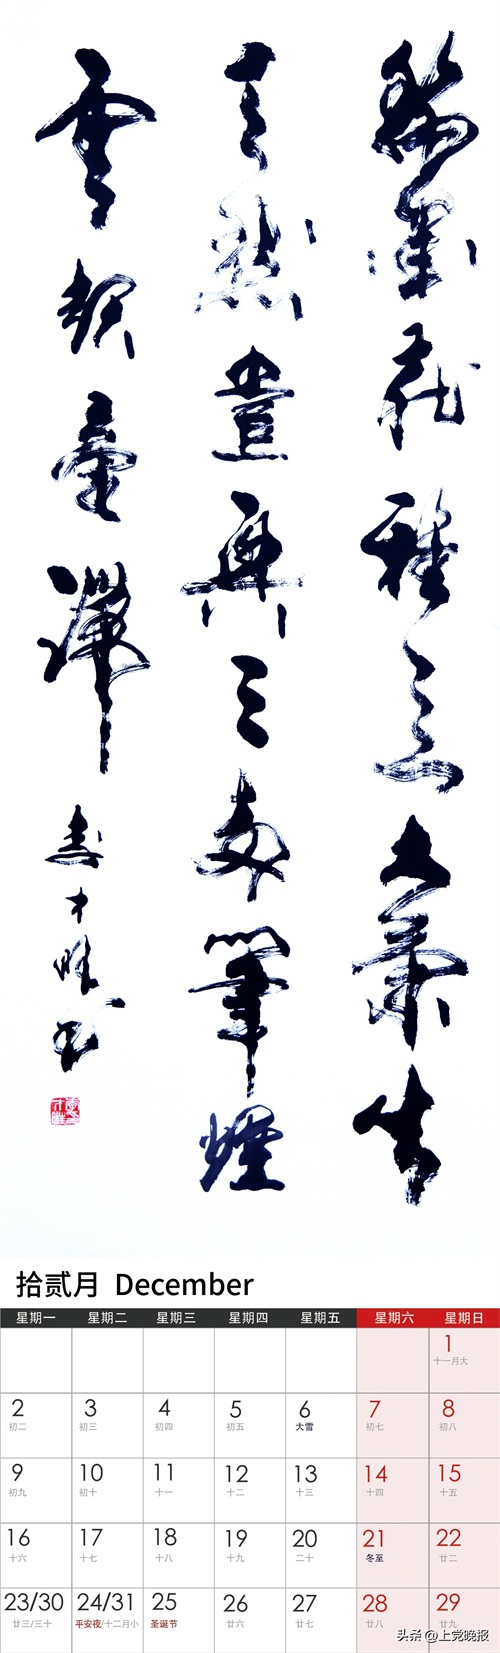 大氣生
然畫興三兩筆煙
雲
拾贰月 December
星期一 星期二 星期三 星期四 星期五 星期六 星期日
1
十一月大
2 3 4 5 6 7 8
初二 初三 初四 初五 大雪 初七 初八
9 10 11 12 13 14 15
初九 初十 十一 十二 十三 十四 十五
16 17 18 19 20 21 22
十六 十七 十八 十九 二十 冬至 廿二
23/30 24/31 25 26 27 28 29
廿三/三十 平安夜/十二月小 圣诞节 廿六 廿七 廿八 廿九
头条 @上党晚报